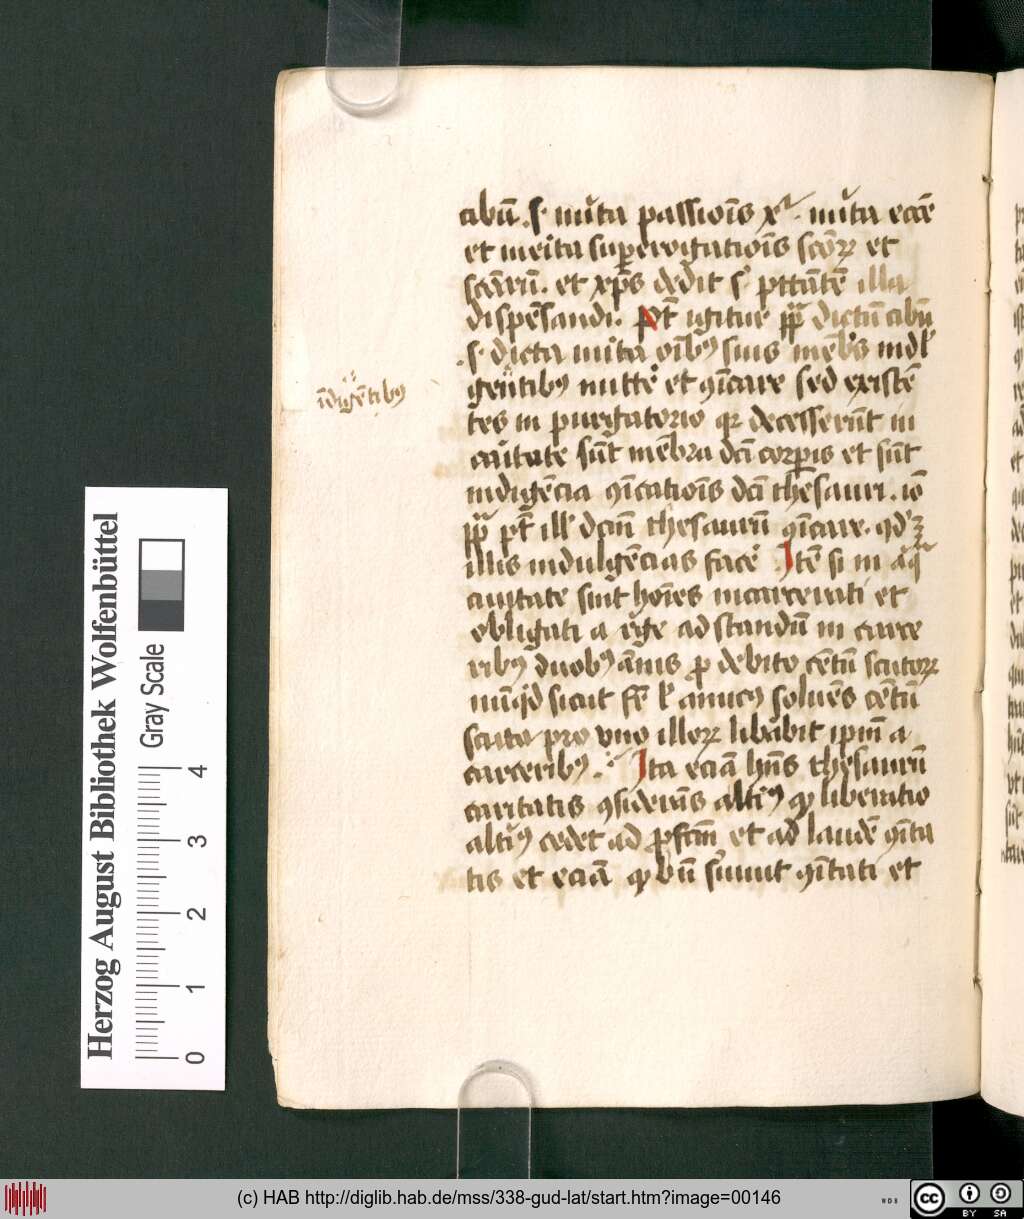 cibū .s. mīta passiōis xi. mīta eccē
et meita supererogatiōis scōꝝ et
scārū. et xp̄s dedit s. ptātē illa
dispēsandi. pōt igitur pp̄ dictū cibū
.s. dicta mīta oībꝯ suis mēbris indi
gentibꝯ mittē et ꝯīcare sed existē
tes in purgatorio qꝛ decesserūt in
caritate sūt mēbra dci corpis et sūt
indigēcia ꝯīcatiōis dci thesauri. iō
pp̄ pōt illū dcm̄ thesaurū ꝯīcare. qđ ē
illis indulgēcias facē. Itē si in aliq̄
ciuitate sint hoīes incarcerati et
obligati a rege ad standū in carce
ribꝯ duobꝯ annis pro debito cētū scutoꝝ
nūqd sicut fr̄ l' amicꝯ soluēs cētū
scuta pro vno illoꝝ libabit ipm̄ a
carceribꝯ. Ita eciā hn̄s thesaurū
caritatis ꝯsiderās altiꝯ qđ liberatio
altiꝯ cedet ad profcm̄ et ad laudē ꝯīta
tis et eciā qđ bn̄ suiuit ꝯītati et
īdigētibꝯ
Herzog August Bibliothek Wolfenbüttel
Gray Scale
0 1 2 3 4
(c) HAB http://diglib.hab.de/mss/338-gud-lat/start.htm?image=00146
WDB
cc BY SA